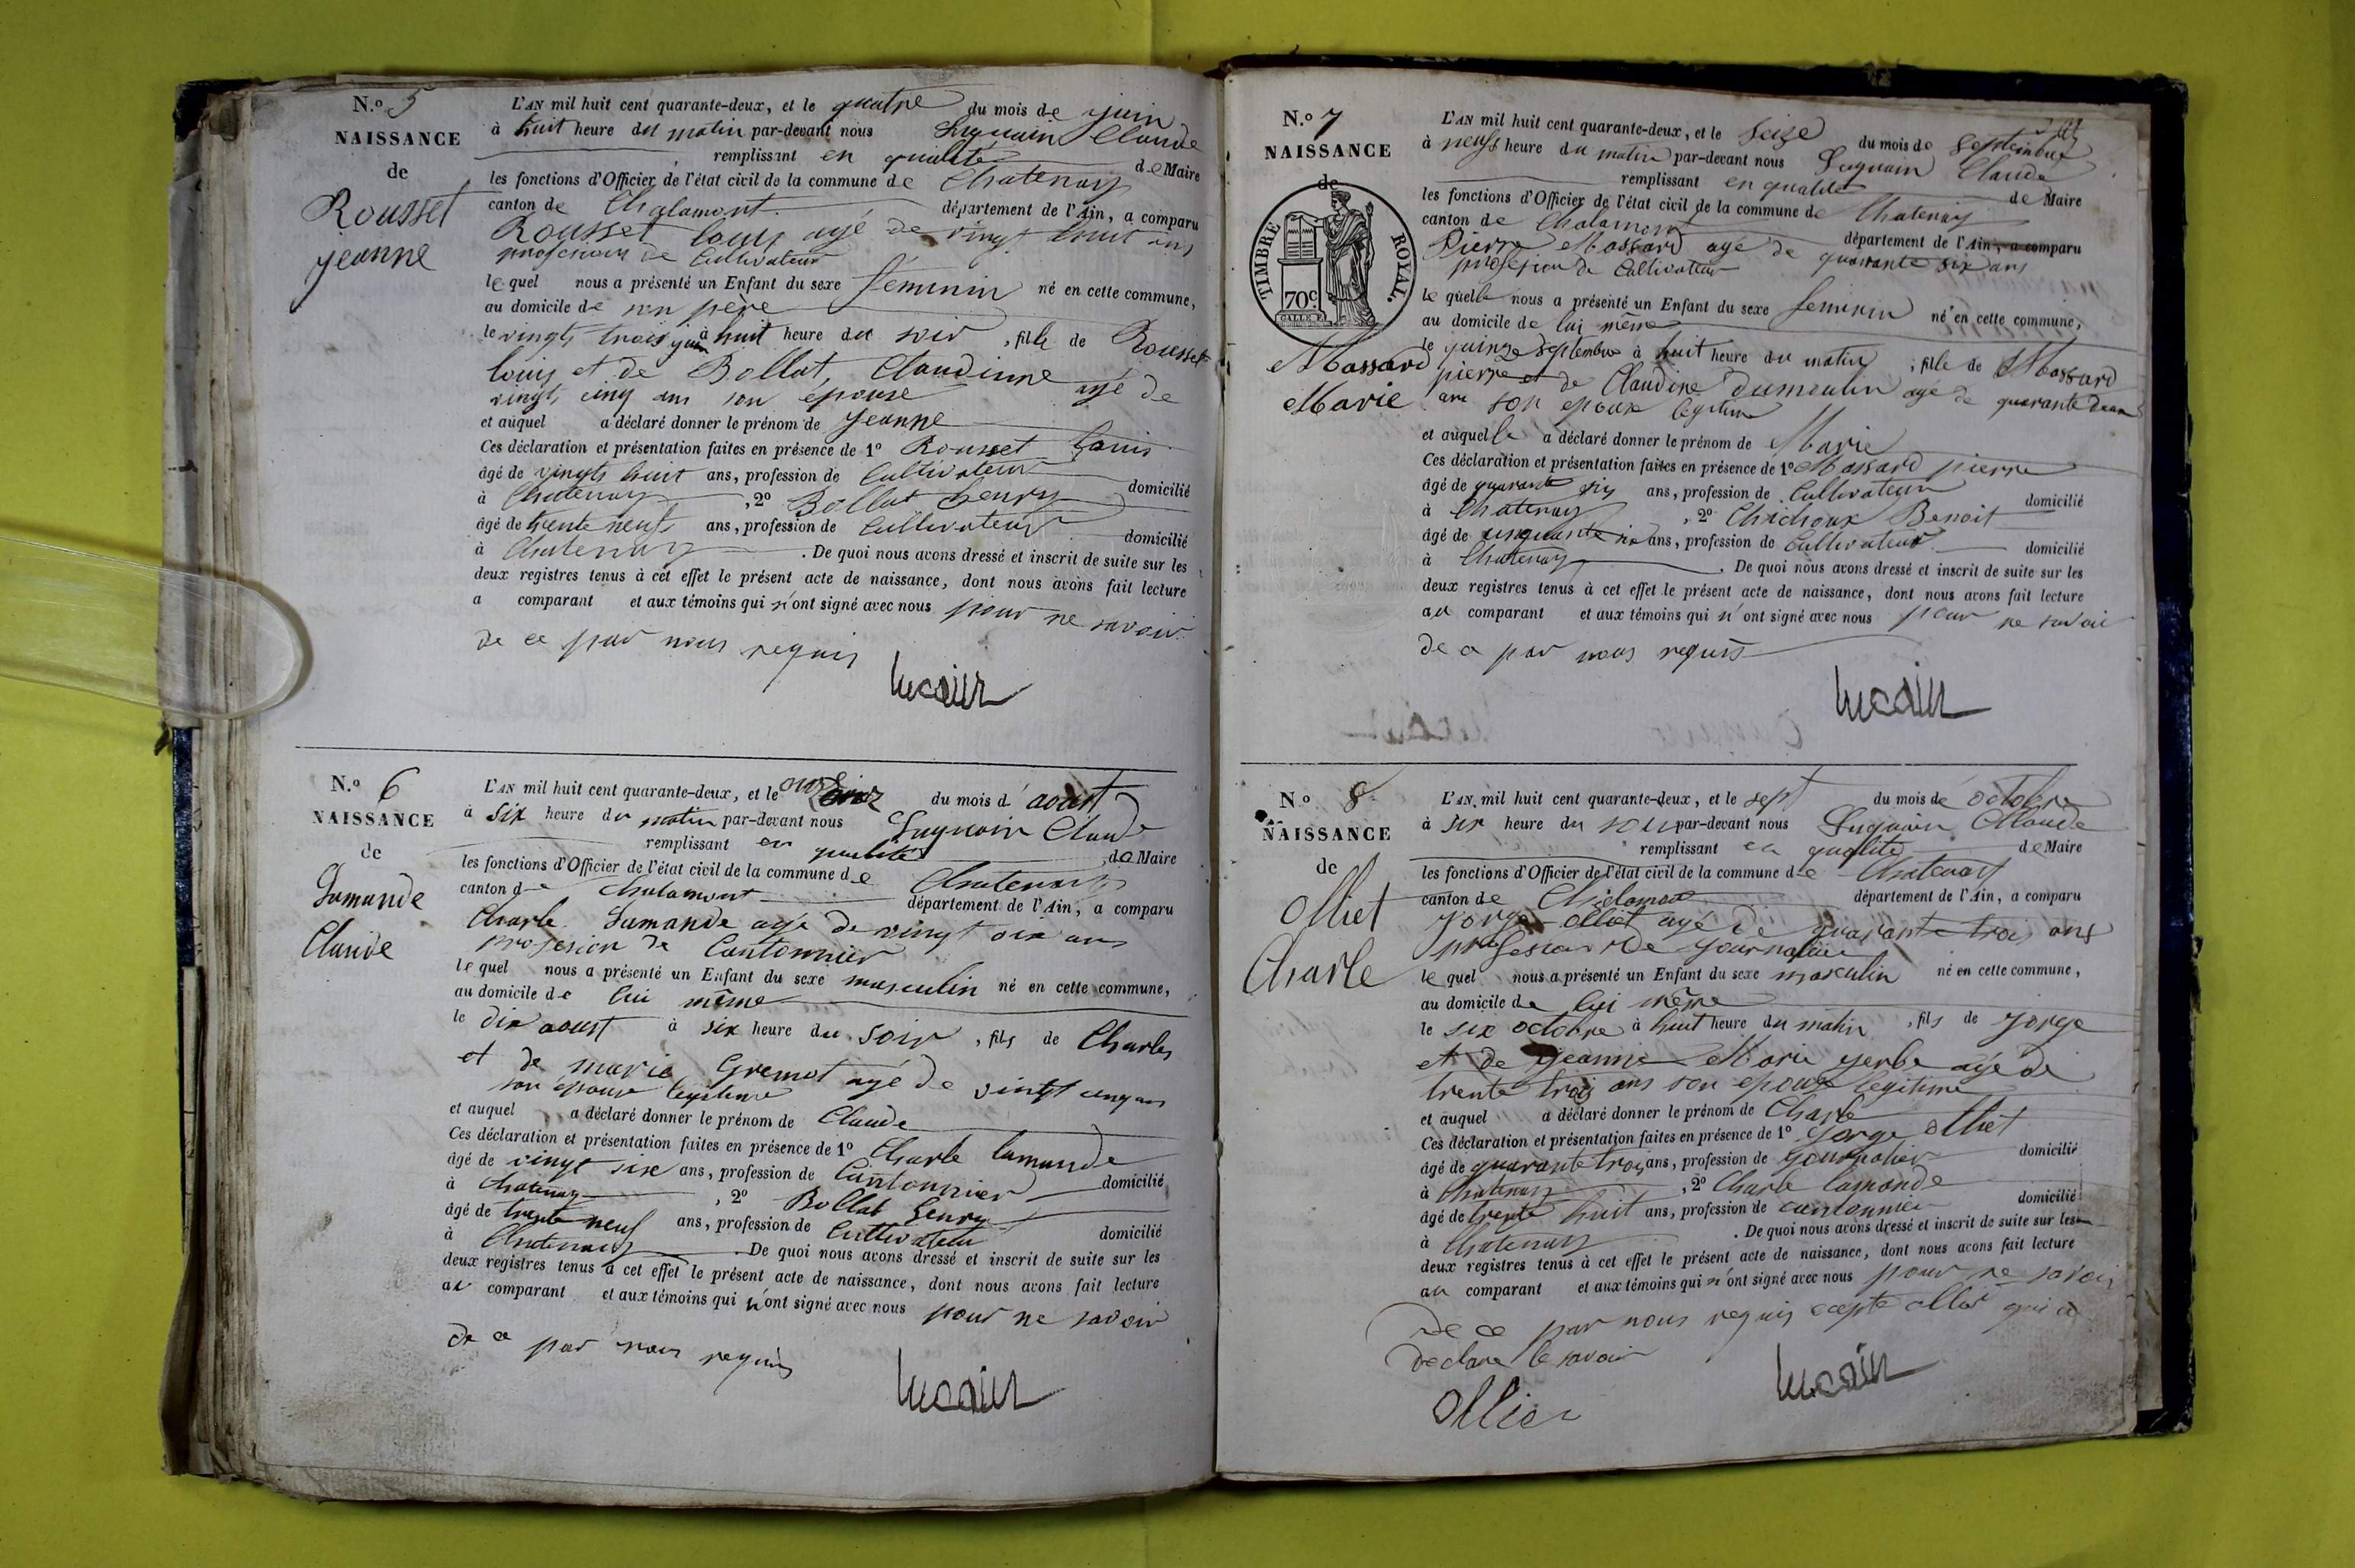 N.o 5
NAISSANCE
de
Rousset
jeanne
L'AN mil huit cent quarante-deux, et le quatre du mois de juin
à huit heure du matin par-devant nous Luquain Claude
remplissant en qualité de Maire
les fonctions d'Officier de l'état civil de la commune de Chatenay
canton de Chalamont département de l'Ain, a comparu
Rousset louis agé de vingt huit ans
profession de Cultivateur
le quel nous a présenté un Enfant du sexe féminin né en cette commune,
au domicile de son père
le vingt trois juin à huit heure du soir, fille de Rousset
louis et de Bollat, Claudinne agé de
vingt cinq ans son épouse
et auquel a déclaré donner le prénom de Jeanne
Ces déclaration et présentation faites en présence de 1o Rousset Louis
âgé de vingts huit ans, profession de Cultivateur domicilié
à Chatenay, 2o Bollat henry
âgé de trente neuf ans, profession de Cultivateur domicilié
à Chatenay. De quoi nous avons dressé et inscrit de suite sur les
deux registres tenus à cet effet le présent acte de naissance, dont nous avons fait lecture
a comparant et aux témoins qui n'ont signé avec nous pour ne savoir
de ce par nous requis
lucain
N.o 6
NAISSANCE
de
Lamande
Claude
L'AN mil huit cent quarante-deux, et le onze du mois d'aoust
à six heure du matin par-devant nous Luquain Claude
remplissant en qualité de Maire
les fonctions d'Officier de l'état civil de la commune de Chatenay
canton de Chalamont département de l'Ain, a comparu
Charle Lamande agé de vingt six ans
profesion de Cantonnier
le quel nous a présenté un Enfant du sexe masculin né en cette commune,
au domicile de lui même
le dix aoust à six heure du soir, fils de Charles
et de marie Gremot agé de vingt cinq ans
son épouse legitime
et auquel a déclaré donner le prénom de Claude
Ces déclaration et présentation faites en présence de 1o Charle lamande
âgé de vingt six ans, profession de Cantonnier domicilié
à Chatenay, 2o Bollat henry
âgé de trente neuf ans, profession de Cultivateur domicilié
à Chatenay. De quoi nous avons dressé et inscrit de suite sur les
deux registres tenus à cet effet le présent acte de naissance, dont nous avons fait lecture
au comparant et aux témoins qui n'ont signé avec nous pour ne savoir
de ce par nous requis
lucain
N.o 7
NAISSANCE
de
TIMBRE ROYAL.
70c.
Massard
Marie
L'AN mil huit cent quarante-deux, et le seize du mois de septembre
à neuf heure du matin par-devant nous Luquain Claude
remplissant en qualité de Maire
les fonctions d'Officier de l'état civil de la commune de Chatenay
canton de Chalamont département de l'Ain, a comparu
Pierre Massard agé de quarante six ans
profession de Cultivateur
le quelle nous a présenté un Enfant du sexe feminin né en cette commune,
au domicile de lui même
le quinze septembre à huit heure du matin, fille de Massard
pierre et de Claudine dumoulin agé de quarante deux
ans son epoux legitime
et auquelle a déclaré donner le prénom de Marie
Ces déclaration et présentation faites en présence de 1o Massard pierre
âgé de quarante six ans, profession de Cultivateur domicilié
à Chatenay, 2o Chichoux Benoit
âgé de cinquante six ans, profession de Cultivateur domicilié
à Chatenay. De quoi nous avons dressé et inscrit de suite sur les
deux registres tenus à cet effet le présent acte de naissance, dont nous avons fait lecture
au comparant et aux témoins qui n'ont signé avec nous pour ne savoir
de ce par nous requis
lucain
N.o 8
NAISSANCE
de
Olliet
Charle
L'AN mil huit cent quarante-deux, et le sept du mois de octobre
à six heure du soir par-devant nous Luquain Claude
remplissant en qualité de Maire
les fonctions d'Officier de l'état civil de la commune de Chatenay
canton de Chalamont département de l'Ain, a comparu
Jorge Olliet agé de quarante trois ans
profession de journalier
le quel nous a présenté un Enfant du sexe masculin né en cette commune,
au domicile de lui même
le six octobre à huit heure du matin, fils de Jorge
et de jeanne Marie yerbe agé de
trente trois ans son epoux legitime
et auquel a déclaré donner le prénom de Charle
Ces déclaration et présentation faites en présence de 1o Jorge Olliet
âgé de quarante trois ans, profession de journalier domicilié
à Chatenay, 2o Charle lamande
âgé de trente huit ans, profession de cantonnier domicilié
à Chatenay. De quoi nous avons dressé et inscrit de suite sur les
deux registres tenus à cet effet le présent acte de naissance, dont nous avons fait lecture
au comparant et aux témoins qui n'ont signé avec nous pour ne savoir
de ce par nous requis ecepte olliet qui a
declare le savoir
Ollier
lucain